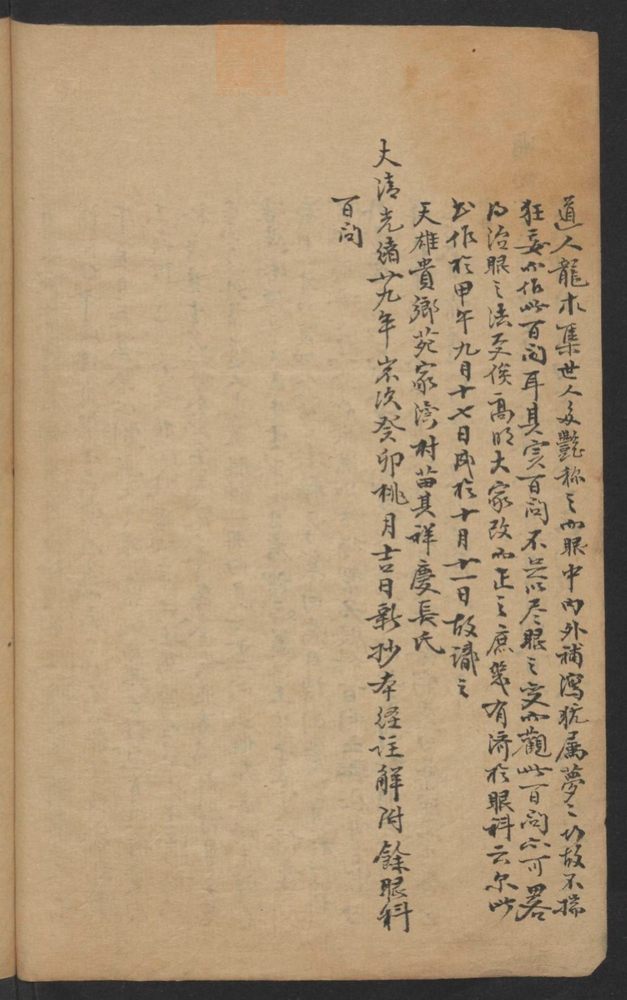 道人龍木集世人多艷称之而眼中内外補瀉犹属夢夢功故不揣
狂妄而作此百问耳其实百问不足以尽眼之变而觀此百问亦可畧
为治眼之法更俟高明大家改而正之庶幾有济於眼科云尔此
书作於甲午九月十七日成於十月十一日故識之
天雄貴鄉苑家湾村苗其祥慶長氏
大清光緒廿九年岁次癸卯桃月吉日新抄本経註解附餘眼科
百问